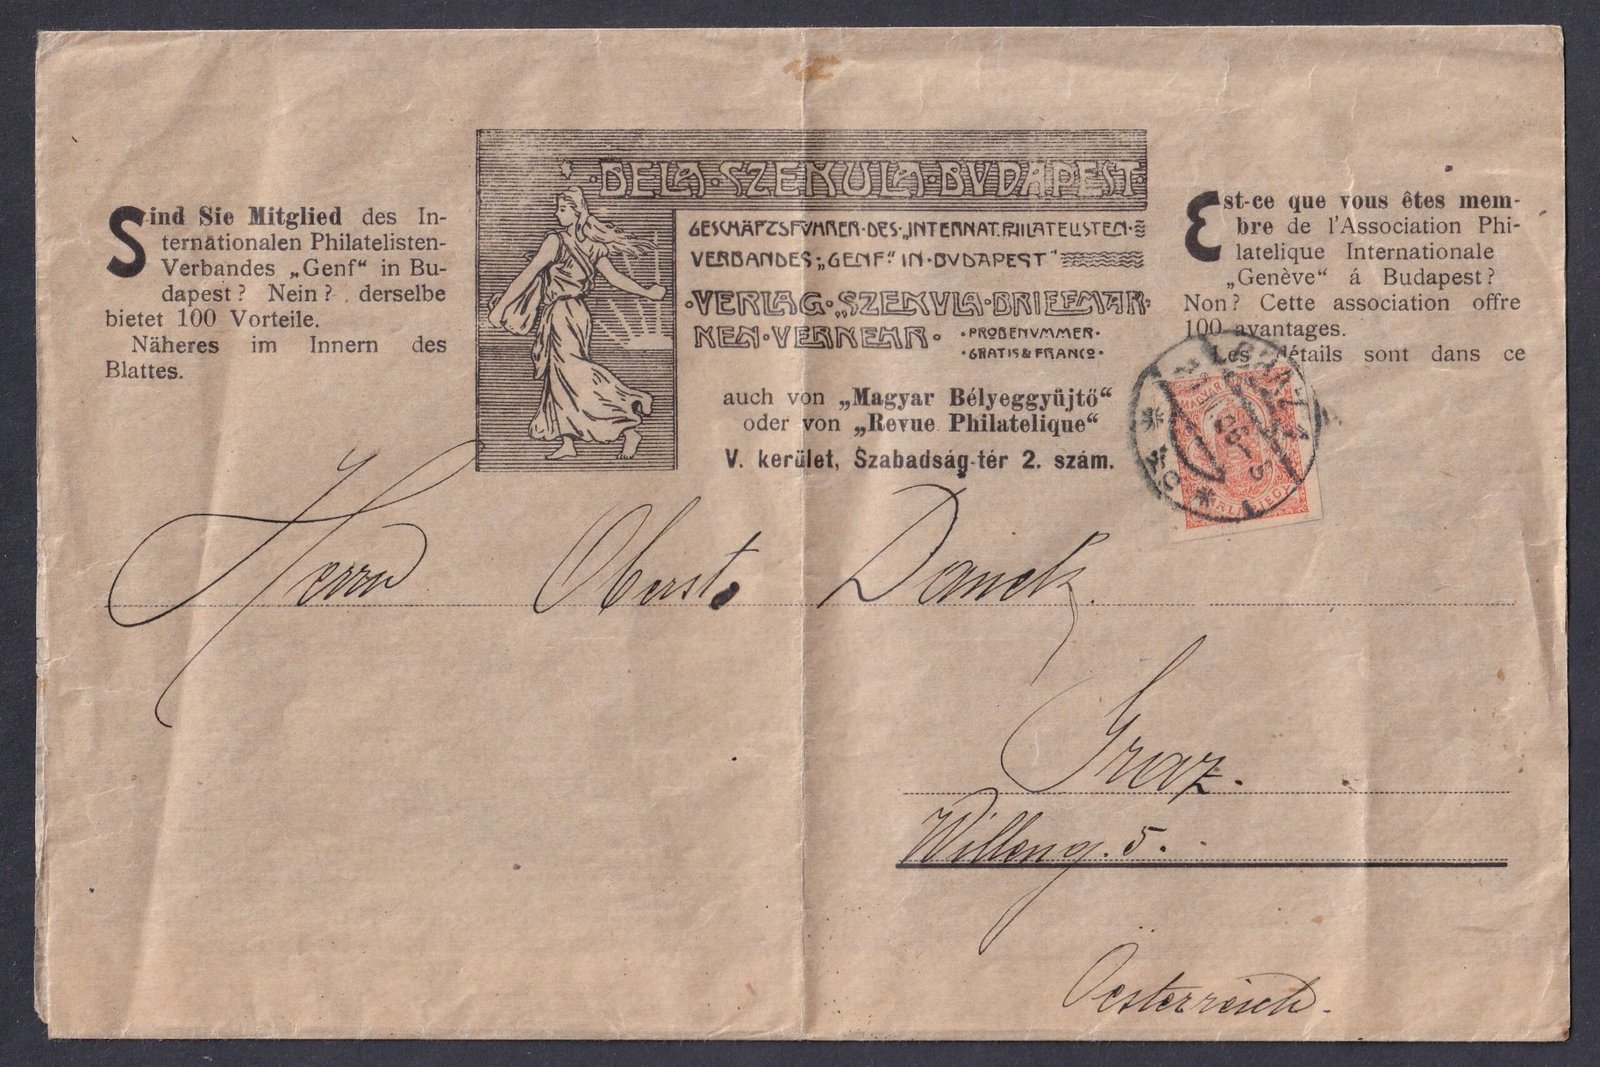 Sind Sie Mitglied des In-
ternationalen Philatelisten-
Verbandes „Genf“ in Bu-
dapest? Nein? derselbe
bietet 100 Vorteile.
Näheres im Innern des
Blattes.
·BELA·SZEKULA·BVDAPEST·
GESCHÄFTSFVHRER·DES·„INTERNAT.PHILATELISTEN·
VERBANDES·„GENF“ IN·BVDAPEST“
·VERLAG·„SZEKVLA·BRIEFMAR·
KEN·VERKEHR·
·PROBENVMMER·
·GRATIS & FRANCO·
auch von „Magyar Bélyeggyüjtő“
oder von „Revue Philatelique“
V. kerület, Szabadság-tér 2. szám.
Est-ce que vous êtes mem-
bre de l'Association Phi-
latelique Internationale
„Genève“ á Budapest?
Non? Cette association offre
100 avantages.
Les détails sont dans ce
MAGYAR
HIRLAPJEGY
Herrn Oberst Danek.
Graz.
Willeng. 5.
Oesterreich.